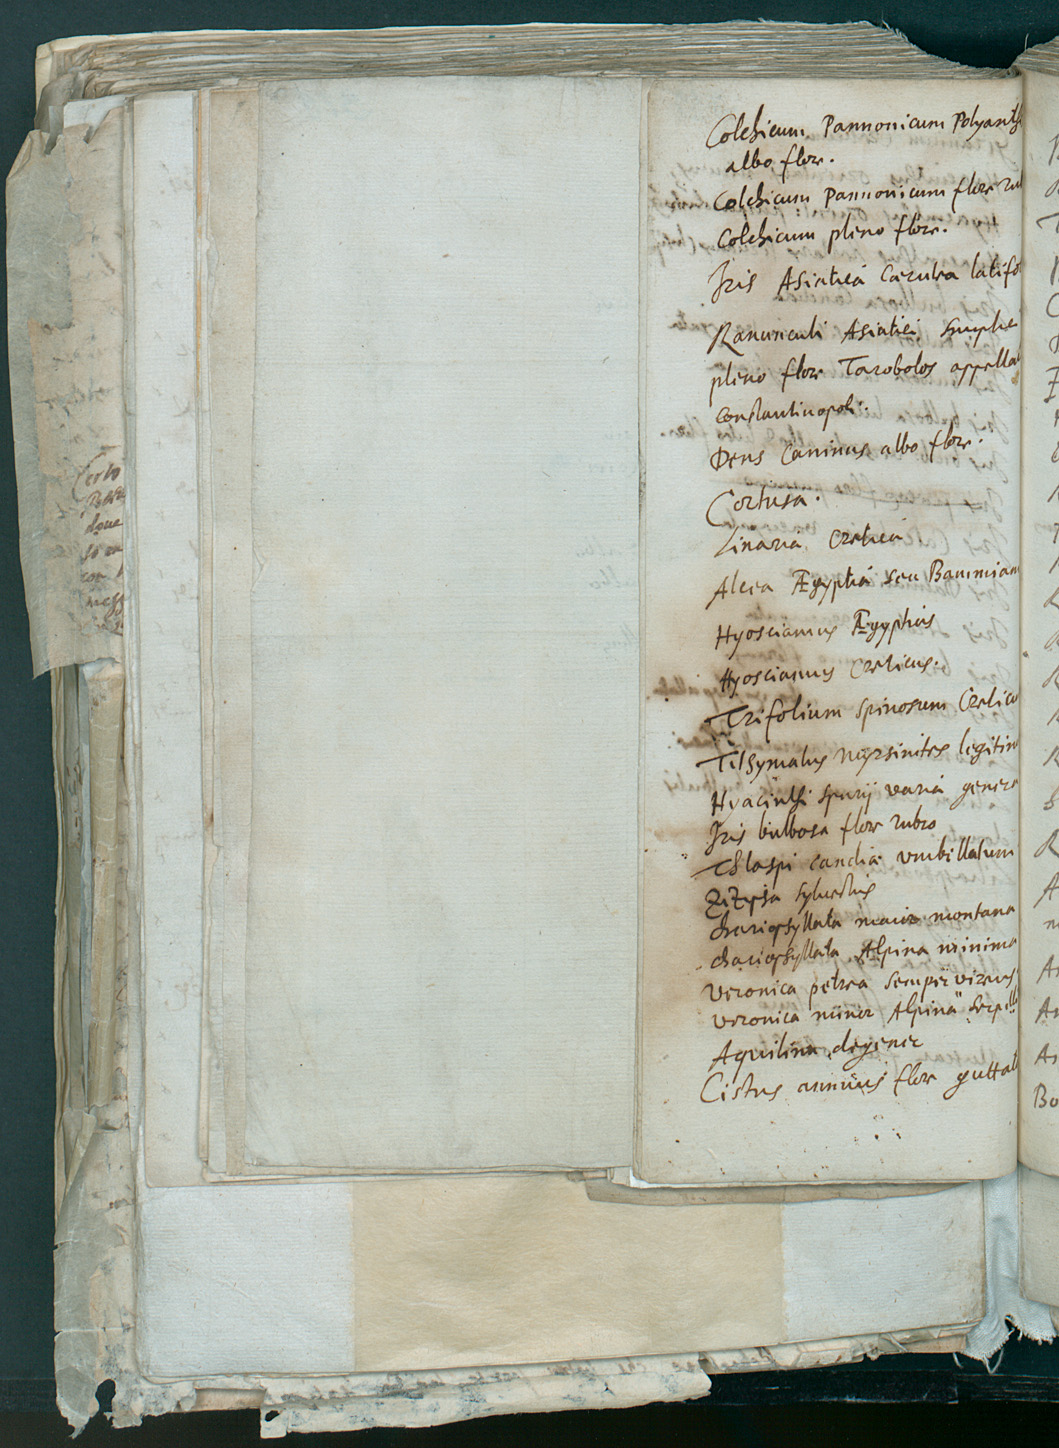 Colchicum Pannonicum Polyanth
albo flore.
Colchicum Pannonicum flore rub
Colchicum pleno flore.
Iris Asiatica Cærulea latifo
Ranunculi Asiatici simplici
pleno flore Tarobolos appella
Constantinopoli.
Dens Caninus albo flore.
Cortusa.
Linaria Cretica
Alcea Ægyptia seu Bammiam
Hyosciamus Ægyptius
Hyosciamus Creticus.
Trifolium spinosum Cretico
Tithymalus myrsinites legitim
Hyacinthi spurij varia genere
Iris bulbosa flore rubro
Thlaspi candiæ umbellatum
Zizypha sylvestris
chariophyllata maior montana
chariophyllata Alpina minima
Veronica petrea semper virens
Veronica minor Alpina serpilli
Aquilina degener
Cistus annuus flore guttat